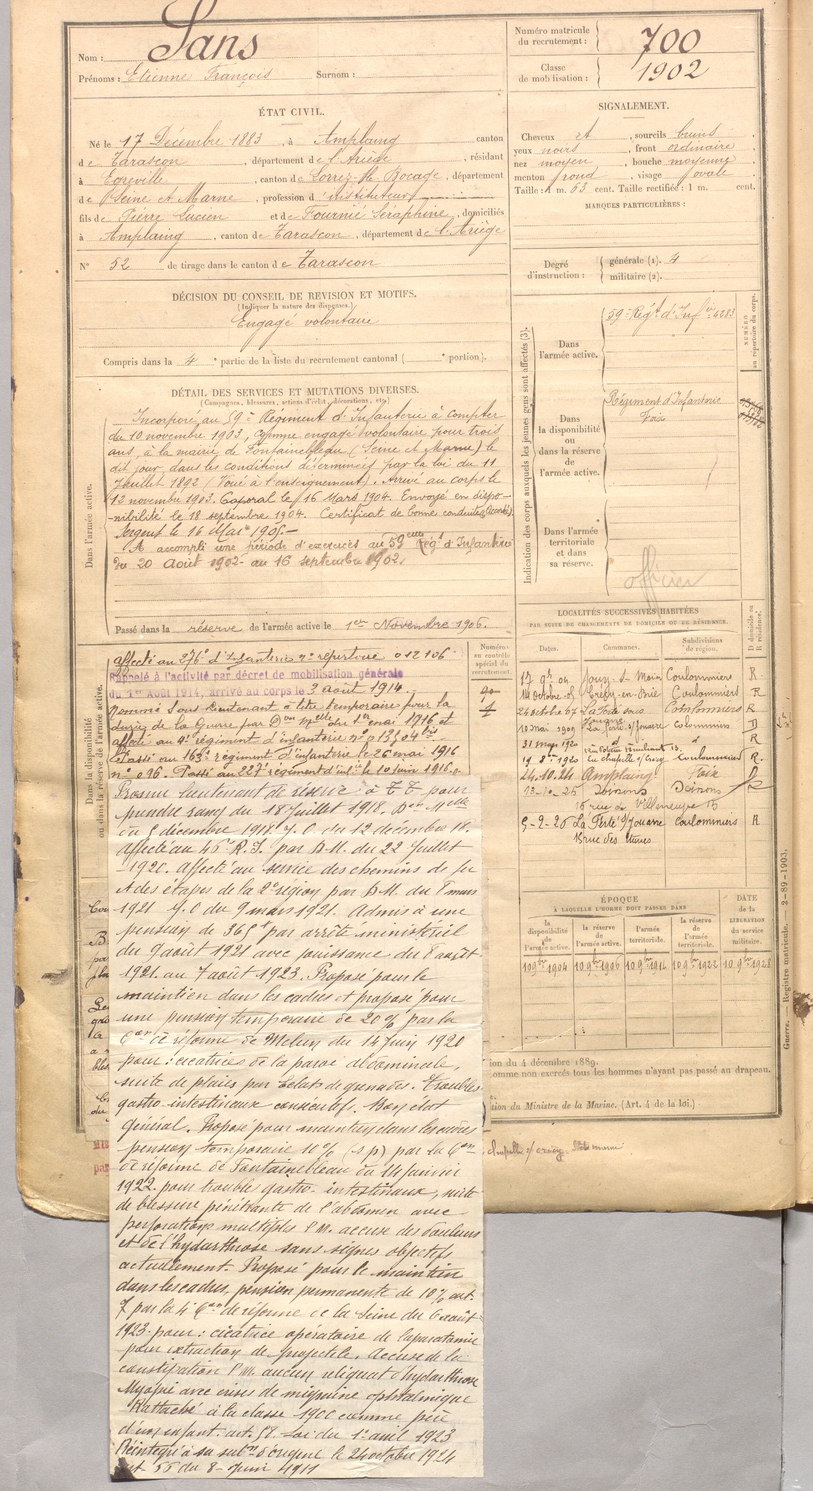 Nom : Sans
Prénoms : Etienne François Surnom :
Numéro matricule du recrutement : 700
Classe de mobilisation : 1902
ÉTAT CIVIL.
Né le 17 Décembre 1883, à Amplaing canton
de Tarascon, département de l'Ariège, résidant
à Egreville, canton de Lorrez-le-Bocage, département
de Seine et Marne, profession d'instituteur
fils de Pierre Lucien et de Fournié Séraphine, domiciliés
à Amplaing, canton de Tarascon, département de l'Ariège
N° 52 de tirage dans le canton de Tarascon
SIGNALEMENT.
Cheveux et, sourcils bruns
yeux noirs, front ordinaire
nez moyen, bouche moyenne
menton rond, visage ovale
Taille : 1 m. 63 cent. Taille rectifiée : 1 m. cent.
MARQUES PARTICULIÈRES :
Degré d'instruction : générale (1). 4
militaire (2).
DÉCISION DU CONSEIL DE REVISION ET MOTIFS.
(Indiquer la nature des dispenses.)
Engagé volontaire
Compris dans la 4e partie de la liste du recrutement cantonal ( e portion).
DÉTAIL DES SERVICES ET MUTATIONS DIVERSES.
(Campagnes, blessures, actions d'éclat, décorations, etc.)
Dans l'armée active.
Incorporé au 59e Régiment d'Infanterie à compter
du 10 novembre 1903, comme engagé volontaire pour trois
ans, à la mairie de Fontainebleau (Seine et Marne) le
dit jour, dans les conditions déterminées par la loi du 11
Juillet 1892 (Voué à l'enseignement). Arrivé au corps le
12 novembre 1903. Caporal le 16 Mars 1904. Envoyé en dispo-
nibilité le 18 septembre 1904. Certificat de bonne conduite accordé
Sergent le 16 Mars 1905.-
A accompli une période d'exercices au 59ème Régt d'Infanterie
du 20 Août au 16 septembre
Passé dans la réserve de l'armée active le 1er Novembre 1906.
Indication des corps auxquels les jeunes gens sont affectés (3).
NUMÉRO au répertoire du corps.
Dans l'armée active.
59e Régt d'Infie
Dans la disponibilité ou dans la réserve de l'armée active.
Régiment d'Infanterie
Foix
Dans l'armée territoriale et dans sa réserve.
officier
LOCALITÉS SUCCESSIVES HABITÉES
PAR SUITE DE CHANGEMENTS DE DOMICILE OU DE RÉSIDENCE.
Dates. Communes. Subdivisions de région. D domicile ou R résidence.
17 9b 04 Jouy-s-Morin Coulommiers R.
14 octobre 05 Crécy-en-Brie Coulommiers R
24 octobre 07 La Ferté sous Jouarre Coulommiers R
10 mai 1909 La Ferté s/Jouarre Coulommiers D
31 mars 1920 R
19 8e 1920 La chapelle s/ Crécy Coulommiers R.
24.10.24 Amplaing Foix R
13-10-25 Soisons Soisons
15 rue de Villeneuve 15
5-2-26 La Ferté s/ Jouarre Coulommiers R
ÉPOQUE
À LAQUELLE L'HOMME DOIT PASSER DANS
la disponibilité de l'armée active. la réserve de l'armée active. l'armée territoriale. la réserve de l'armée territoriale.
DATE de la LIBÉRATION du service militaire.
10 9bre 1904 10 9bre 1906 10 9bre 1916 10 9bre 1922 10 9bre 1928
Dans la disponibilité ou dans la réserve de l'armée active.
Numéros au contrôle spécial du recrutement.
affecté au 276e d'Infanterie n° répertoire 012106.
Rappelé à l'activité par décret de mobilisation générale
du 1er Août 1914, arrivé au corps le 3 août 1914.
Nommé sous-lieutenant à titre temporaire pour la
durée de la Guerre par Don Melle du 1er mai 1916 et
affecté au 4e régiment d'infanterie n° 13304 bis
Passé au 169e régiment d'infanterie le 26 mai 1916
n° 096. Passé au 227 régiment d'infie le 10 juin 1916.
Promu lieutenant de réserve à TT pour
prendre rang du 18 Juillet 1918. Don Melle
du 5 décembre 1918 J.O du 12 décembre 18.
Affecté au 46e R.I. par D.M. du 22 Juillet
1920. Affecté au service des chemins de fer
et des étapes de la 2e région par D.M. du 8 mars
1921 J.O du 9 mars 1921. Admis à une
pension de 365f par arrêté ministériel
du 9 août 1921 avec jouissance du 8 août
1921 au 7 août 1923. Proposé pour le
maintien dans les cadres et proposé pour
une pension temporaire de 20% par la
Con de réforme de Melun du 14 Juin 1920
pour : cicatrice de la paroi abdominale,
suite de plaies par éclats de grenades. Troubles
gastro-intestinaux consécutifs. Bon état
général. Proposé pour maintien dans les cadres
pension temporaire 10% (s.p) par la Con
de réforme de Fontainebleau du 14 Janvier
1922 pour trouble gastro-intestinaux, suite
de blessure pénétrante de l'abdomen avec
perforations multiples P.M. accuse des douleurs
et de l'hydarthrose sans signes objectifs
actuellement. Proposé pour le maintien
dans les cadres, pension permanente de 10% art.
7 par la 4e Con de réforme de la Seine du 6 août
1923 pour : cicatrice opératoire de laparatomie
pour extraction de projectile. Accuse de la
constipation P.M. aucun reliquat d'hydarthrose
Myopie avec crises de migraine ophtalmique
Rattaché à la classe 1900 comme père
d'un enfant. art. 58 Loi du 1er avril 1923
Réintégré à sa subon d'origine le 24 octobre 1924
art. 55 du 8-Juin 1911
ion du 4 décembre 1889.
omme non exercés tous les hommes n'ayant pas passé au drapeau.
tion du Ministre de la Marine. (Art. 4 de la loi.)
Guerre. — Registre matricule. — 2-89-1903.